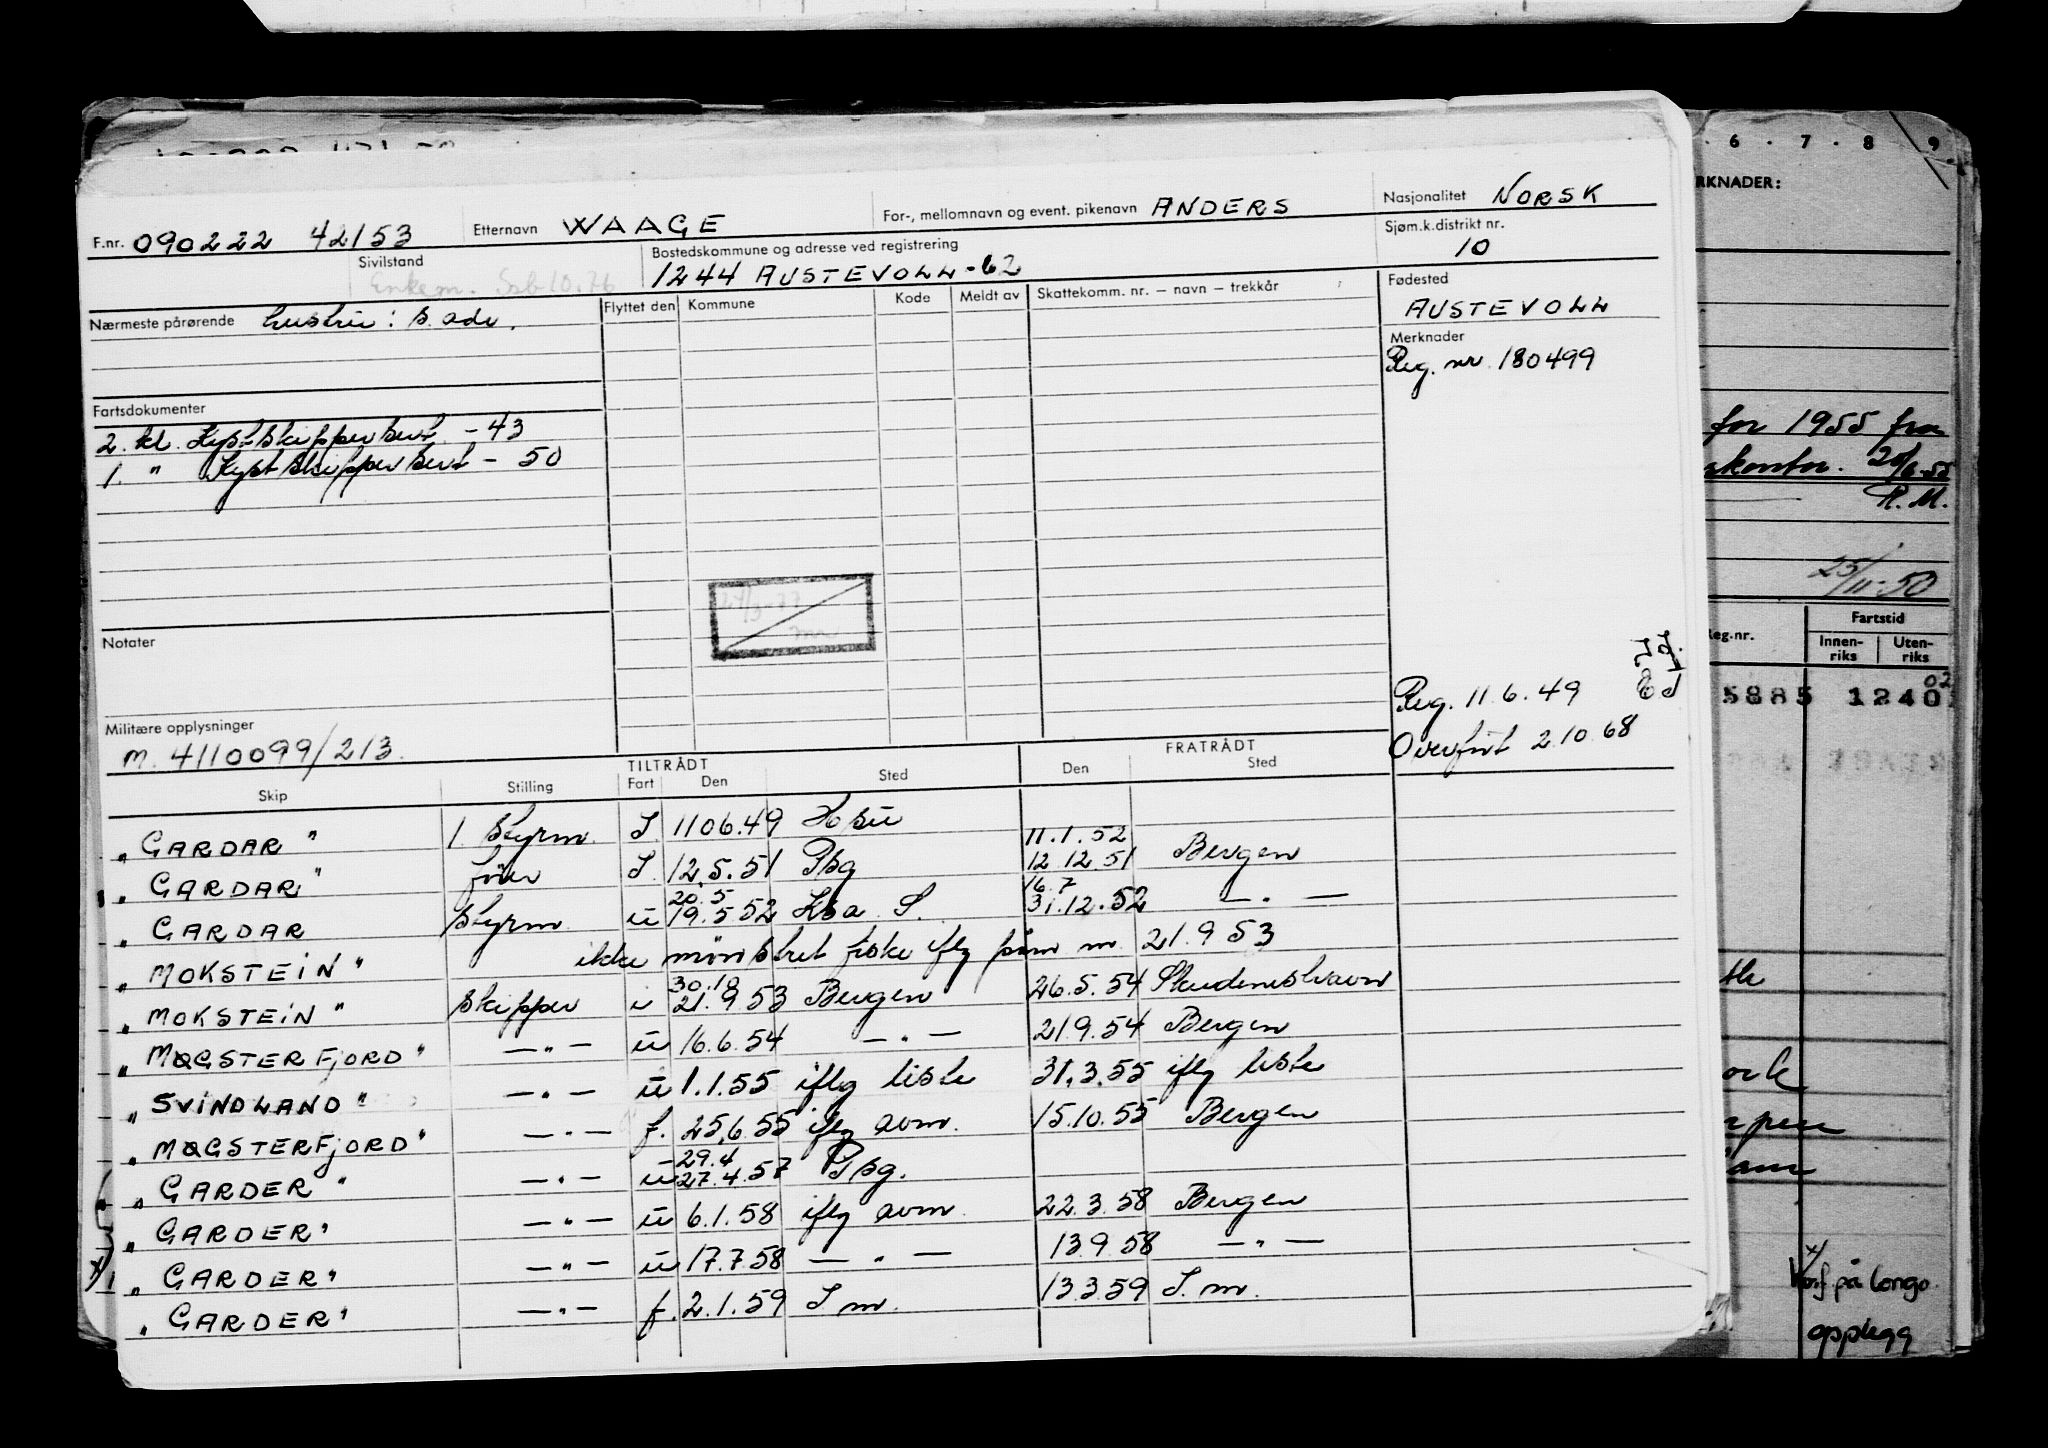 F.nr. 090222 42153 Etternavn WAAGE For-, mellomnavn og event. pikenavn ANDERS Nasjonalitet NORSK
Sivilstand Enkem. Ssb 10.76 Bostedskommune og adresse ved registrering 1244 AUSTEVOLL-62 Sjøm.k.distrikt nr. 10
Nærmeste pårørende hustru: s. adr. Flyttet den Kommune Kode Meldt av Skattekomm. nr. – navn – trekkår Fødested
AUSTEVOLL
Merknader
Reg. nr. 180499
Fartsdokumenter
2. kl. Kystskippersert. - 43
1. " Kystskippersert - 50
Notater
Militære opplysninger
M. 4110099/213.
Reg. 11.6.49
Overført 2.10.68
TILTRÅDT FRATRÅDT
Skip Stilling Fart Den Sted Den Sted
"GARDAR" 1. styrm. I. 1106.49 11.1.52
"GARDAR" fører I. 12.5.51 Pbg 12.12.51 Bergen
20.5 16.7
"GARDAR styrm u 19.5.52 S. 31.12.52 — " —
"MOKSTEIN" ikke mønstret fiske iflg m. 21.9.53
30.10
"MOKSTEIN" skipper i 21.9.53 Bergen 26.5.54 Skudeneshavn
"MØGSTERFJORD" — " — u 16.6.54 — " — 21.9.54 Bergen
"SVINDLAND" — " — u 1.1.55 iflg liste 31.3.55 iflg liste
"MØGSTERFJORD" — " — f. 25.6.55 iflg avm. 15.10.55 Bergen
29.4
"GARDER" — " — u 27.4.57 Pbg.
"GARDER" — " — u 6.1.58 iflg avm. 22.3.58 Bergen
"GARDER" — " — u 17.7.58 — " — 13.9.58 — " —
"GARDER" — " — f. 2.1.59 I m. 13.3.59 I. m.
6 . 7 . 8 9
RKNADER:
for 1955 fra
skontor. 20/6-55
R.M.
25/11-50
Reg.nr. Fartstid
Innen-riks Uten-riks
5885 1240 02
på Longo.
opplegg